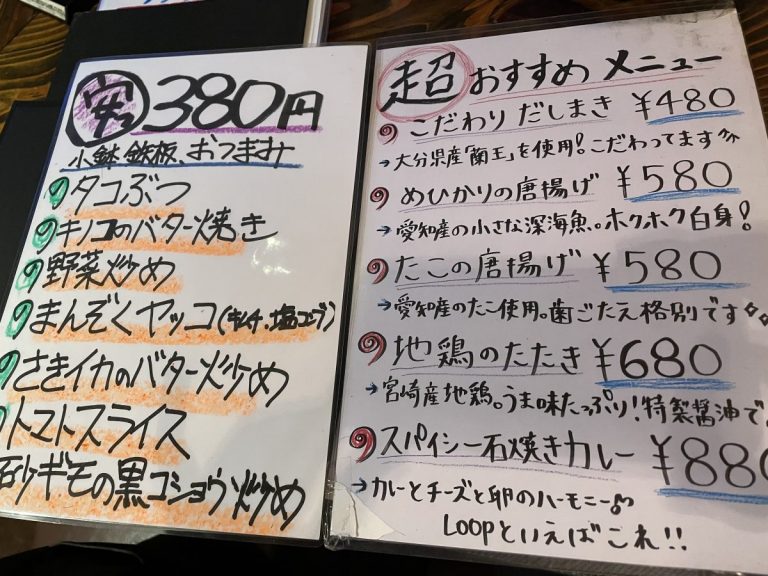 安 380円
小鉢 鉄板 おつまみ
タコぶつ
キノコのバター焼き
野菜炒め
まんぞくヤッコ(キムチ・塩コンブ)
さきイカのバター炒め
トマトスライス
砂ギモの黒コショウ炒め
超おすすめ メニュー
こだわり だしまき ¥480
→大分県産「蘭王」を使用!こだわってます
めひかりの唐揚げ ¥580
→愛知産の小さな深海魚。ホクホク白身!
たこの唐揚げ ¥580
→愛知産のたこ使用。歯ごたえ格別です
地鶏のたたき ¥680
→宮崎産地鶏。うま味たっぷり!特製醤油で
スパイシー石焼きカレー ¥880
→カレーとチーズと卵のハーモニー♪
LOOPといえばこれ!!